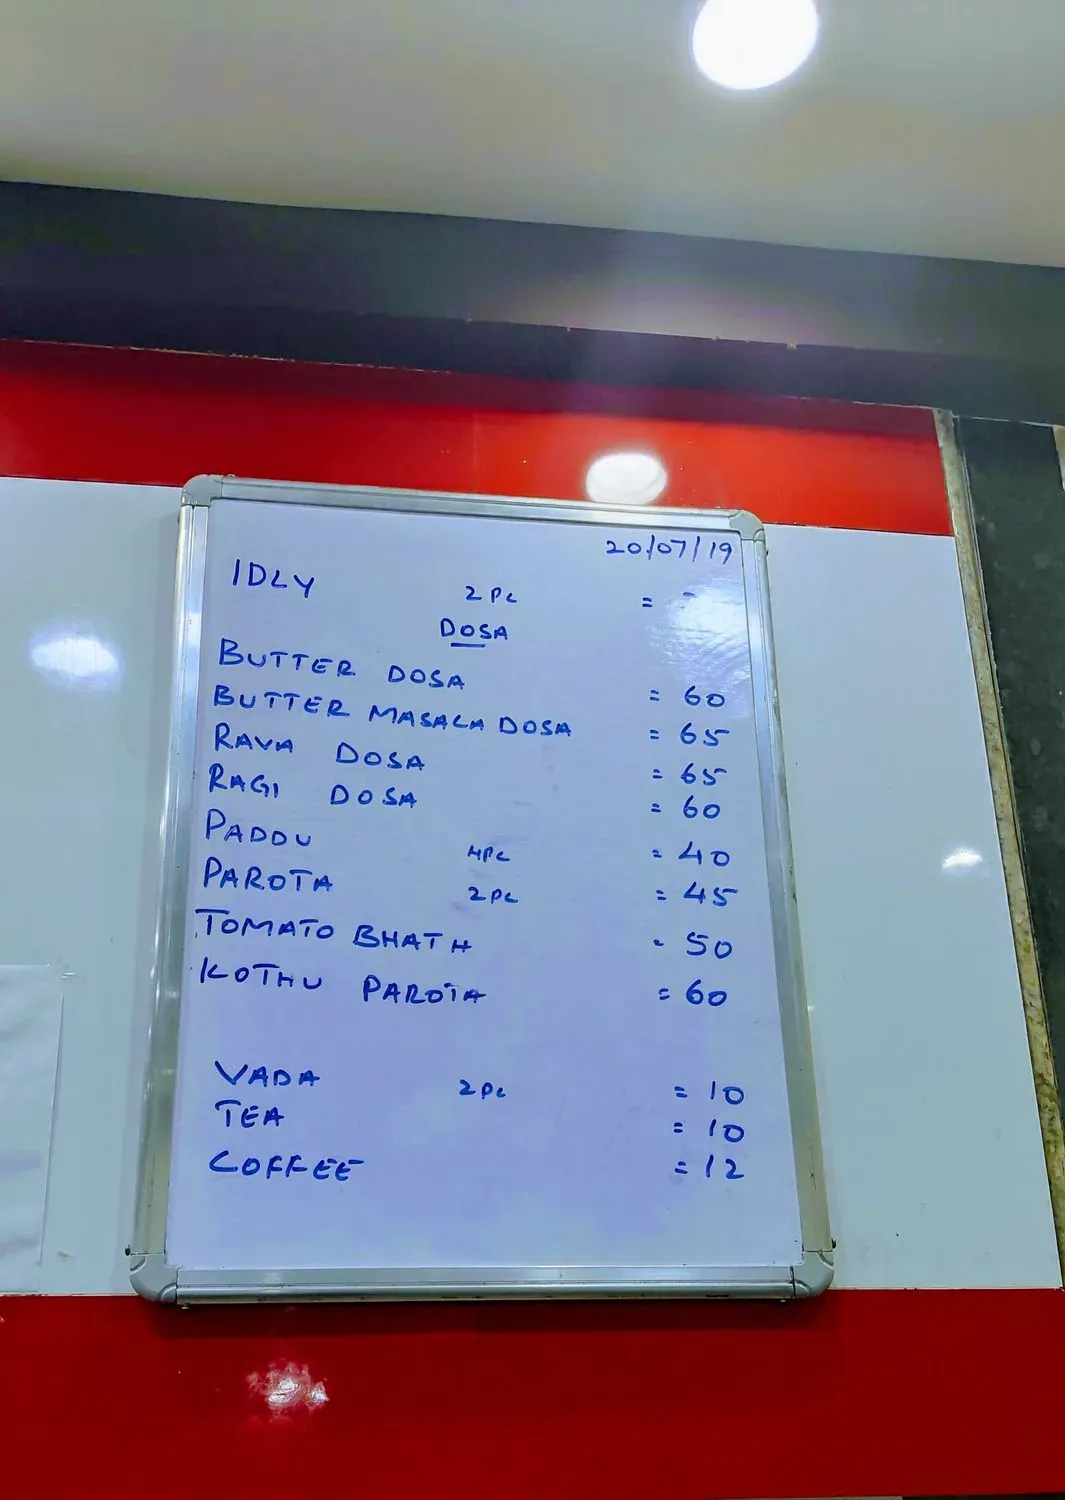 20/07/19
IDLY 2 PC = -
DOSA
BUTTER DOSA = 60
BUTTER MASALA DOSA = 65
RAVA DOSA = 65
RAGI DOSA = 60
PADDU 4PC = 40
PAROTA 2PC = 45
TOMATO BHATH = 50
KOTHU PAROTA = 60
VADA 2PC = 10
TEA = 10
COFFEE = 12